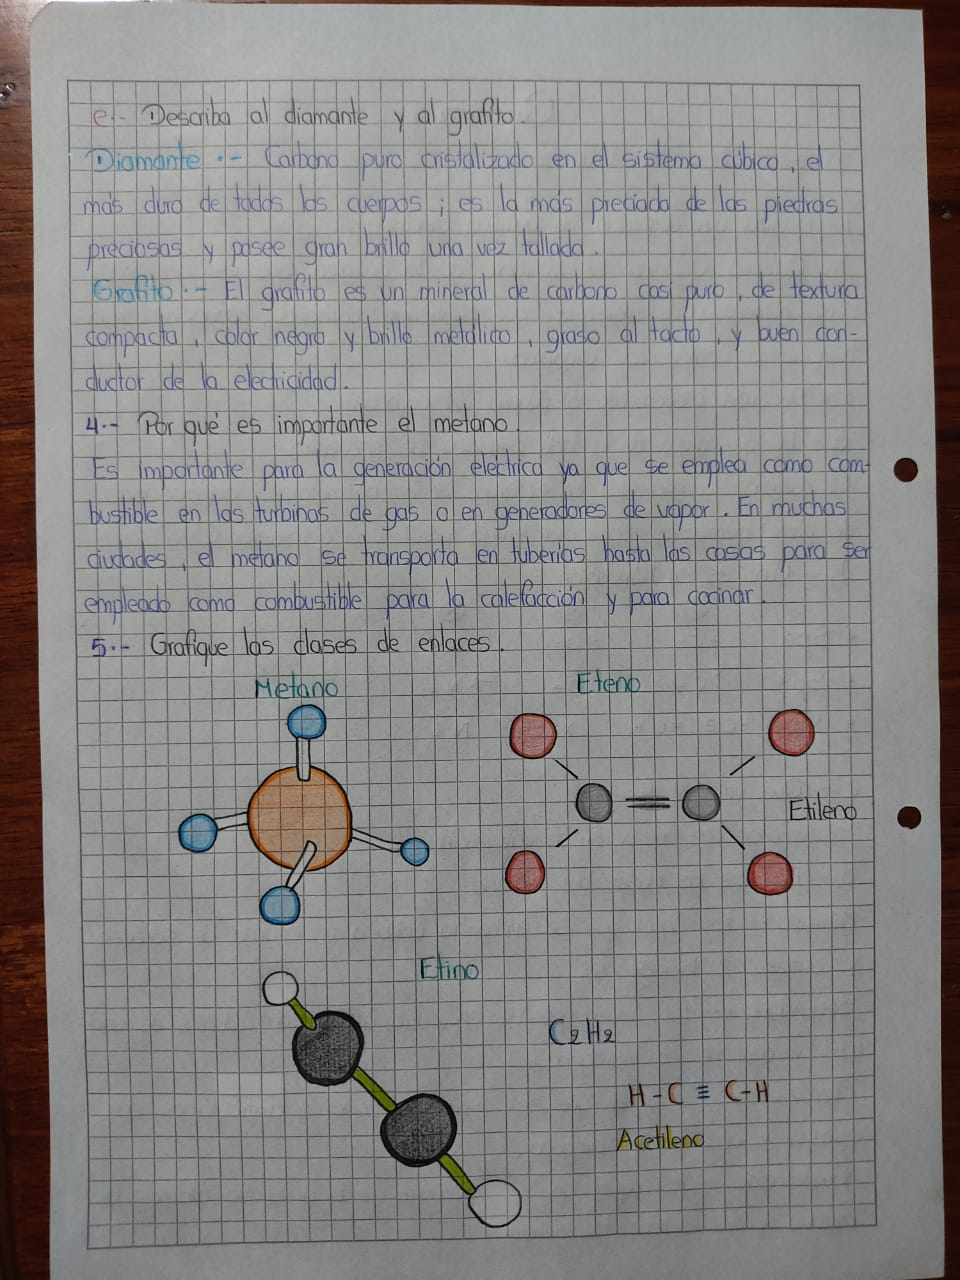 e.- Describa al diamante y al grafito.
Diamante.- Carbono puro cristalizado en el sistema cúbico, el
más duro de todos los cuerpos; es la más preciada de las piedras
preciosas y posee gran brillo una vez tallada.
Grafito.- El grafito es un mineral de carbono casi puro, de textura
compacta, color negro y brillo metálico, graso al tacto, y buen con-
ductor de la electricidad.
4.- Por qué es importante el metano.
Es importante para la generación eléctrica ya que se emplea como com-
bustible en las turbinas de gas o en generadores de vapor. En muchas
ciudades, el metano se transporta en tuberías hasta las casas para ser
empleado como combustible para la calefacción y para cocinar.
5.- Grafique las clases de enlaces.
Metano
Eteno
Etileno
Etino
C2H2
H-C≡C-H
Acetileno